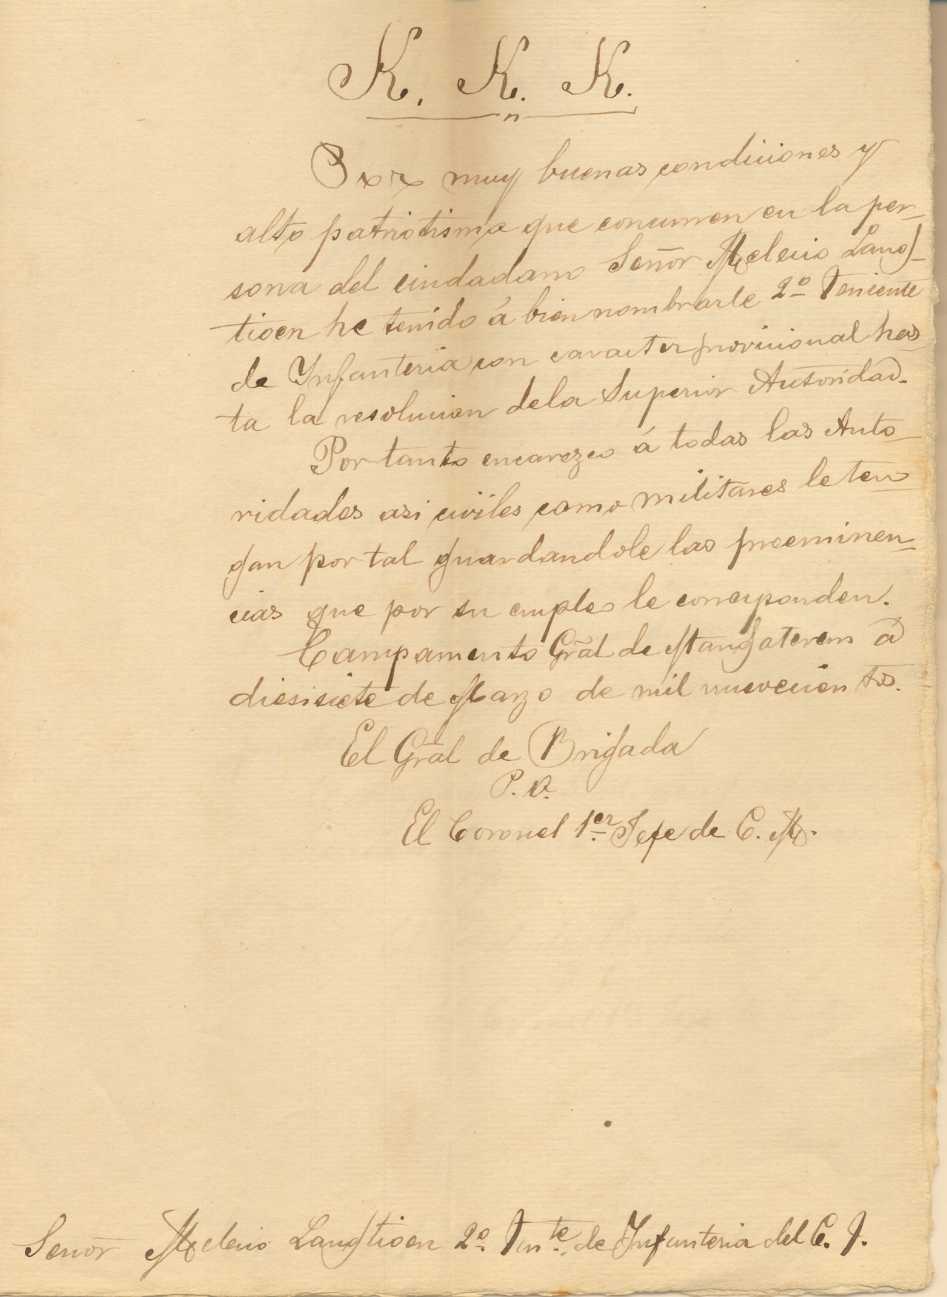 K. K. K.
Por muy buenas condiciones y
alto patriotismo que concurren en la per-
sona del ciudadano Señor Melecio Lang-
tioen he tenido á bien nombrarle 2º Teniente
de Infanteria con caracter provicional has-
ta la resolucion dela Superior Autoridad.
Por tanto encarezco á todas las Auto-
ridades asi civiles como militares le ten-
gan por tal guardandole las preeminen-
cias que por su empleo le corresponden.
Campamento Gral de Mangaterem á
diesisiete de Marzo de mil nuevecientos.
El Gral de Brigada
P. O.
El Coronel 1er Jefe de C. M.
Señor Melecio Langtioen 2º Tente de Infanteria del E. J.